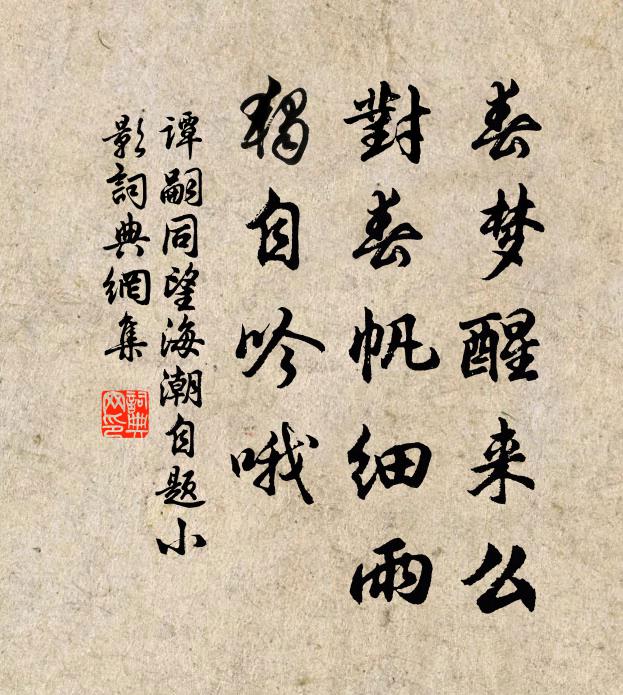 春梦醒来么
對春帆细雨
獨自吟哦
谭嗣同望海潮自题小
影詞典網集
詞典網印